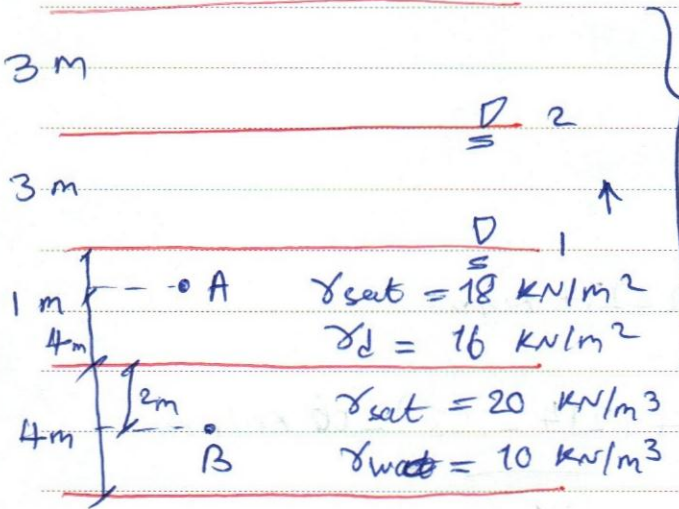 3 m
2
3 m
1
1 m
A
γsat = 18 KN/m²
4m
γd = 16 KN/m²
2m
γsat = 20 KN/m³
4m
B
γw = 10 KN/m³